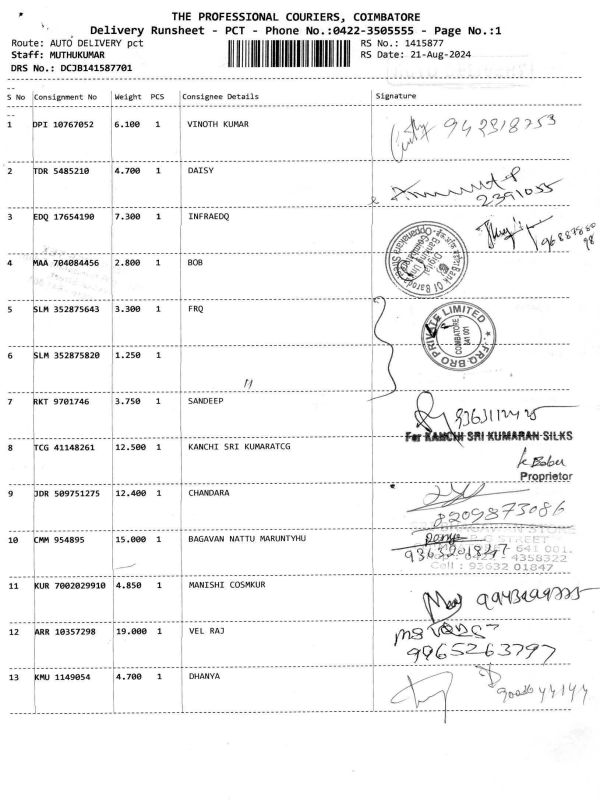 THE PROFESSIONAL COURIERS, COIMBATORE
Delivery Runsheet - PCT - Phone No.:0422-3505555 - Page No.:1
Route: AUTO DELIVERY pct
RS No.: 1415877
Staff: MUTHUKUMAR
RS Date: 21-Aug-2024
DRS No.: DCJB141587701
S No Consignment No Weight PCS Consignee Details Signature
1 DPI 10767052 6.100 1 VINOTH KUMAR
2 TDR 5485210 4.700 1 DAISY
2391055
3 EDQ 17654190 7.300 1 INFRAEDQ
4 MAA 704084456 2.800 1 BOB
Bank Of Baroda
Digital
Banking Unit
Coimbatore
5 SLM 352875643 3.300 1 FRQ
FRQ BRO PRIVATE LIMITED
COIMBATORE
641 001
6 SLM 352875820 1.250 1
11
7 RKT 9701746 3.750 1 SANDEEP
For KANCHI SRI KUMARAN SILKS
8 TCG 41148261 12.500 1 KANCHI SRI KUMARATCG
k Babu
Proprietor
9 JDR 509751275 12.400 1 CHANDARA
8209873086
10 CMM 954895 15.000 1 BAGAVAN NATTU MARUNTYHU
STREET
641 001.
9363201847
0423 - 4358322
Cell : 93632 01847
11 KUR 7002029910 4.850 1 MANISHI COSMKUR
12 ARR 10357298 19.000 1 VEL RAJ
9965263797
13 KMU 1149054 4.700 1 DHANYA